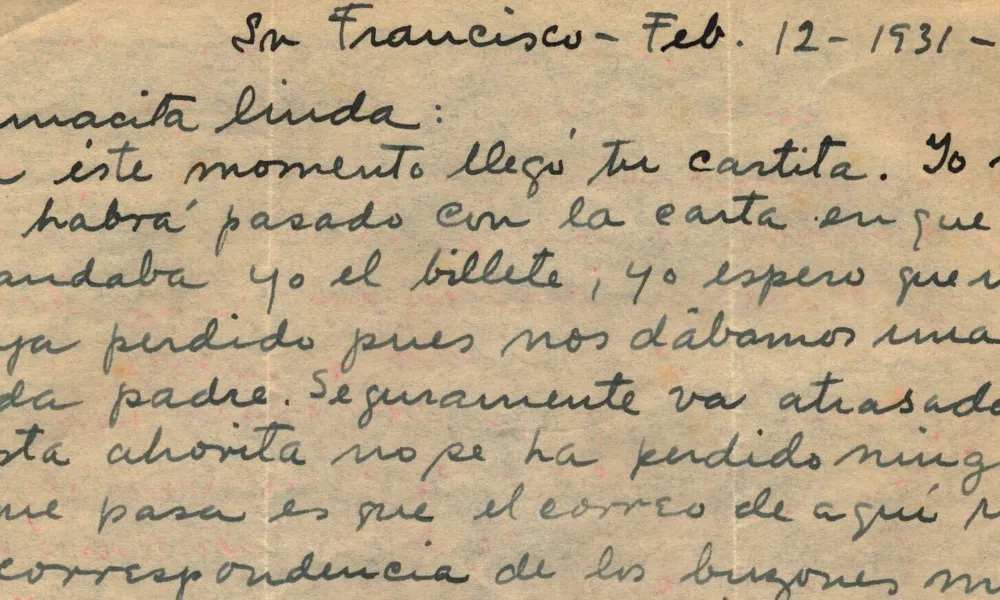 Sn Francisco - Feb. 12 - 1931 -
macita linda:
éste momento llegó tu cartita. Yo
habrá pasado con la carta en que
andaba yo el billete, yo espero que
ya perdido pues nos dábamos una
da padre. Seguramente va atrasado
sta ahorita no se ha perdido ning
me pasa es que el correo de aquí
correspondencia de los buzones